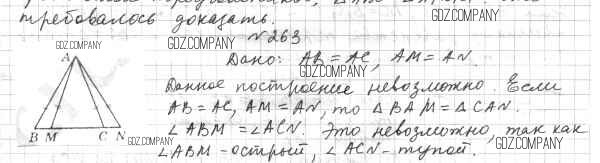 требовалось доказать.
GDZ.COMPANY
№263
GDZ.COMPANY
GDZ.COMPANY
Дано: AB = AC, AM = AN.
A
Данное построение невозможно. Если
AB = AC, AM = AN, то △BAM = △CAN.
∠ABM = ∠ACN. Это невозможно, так как
B M C N
GDZ.COMPANY
∠ABM - острый, ∠ACN - тупой.
GDZ.COMPANY